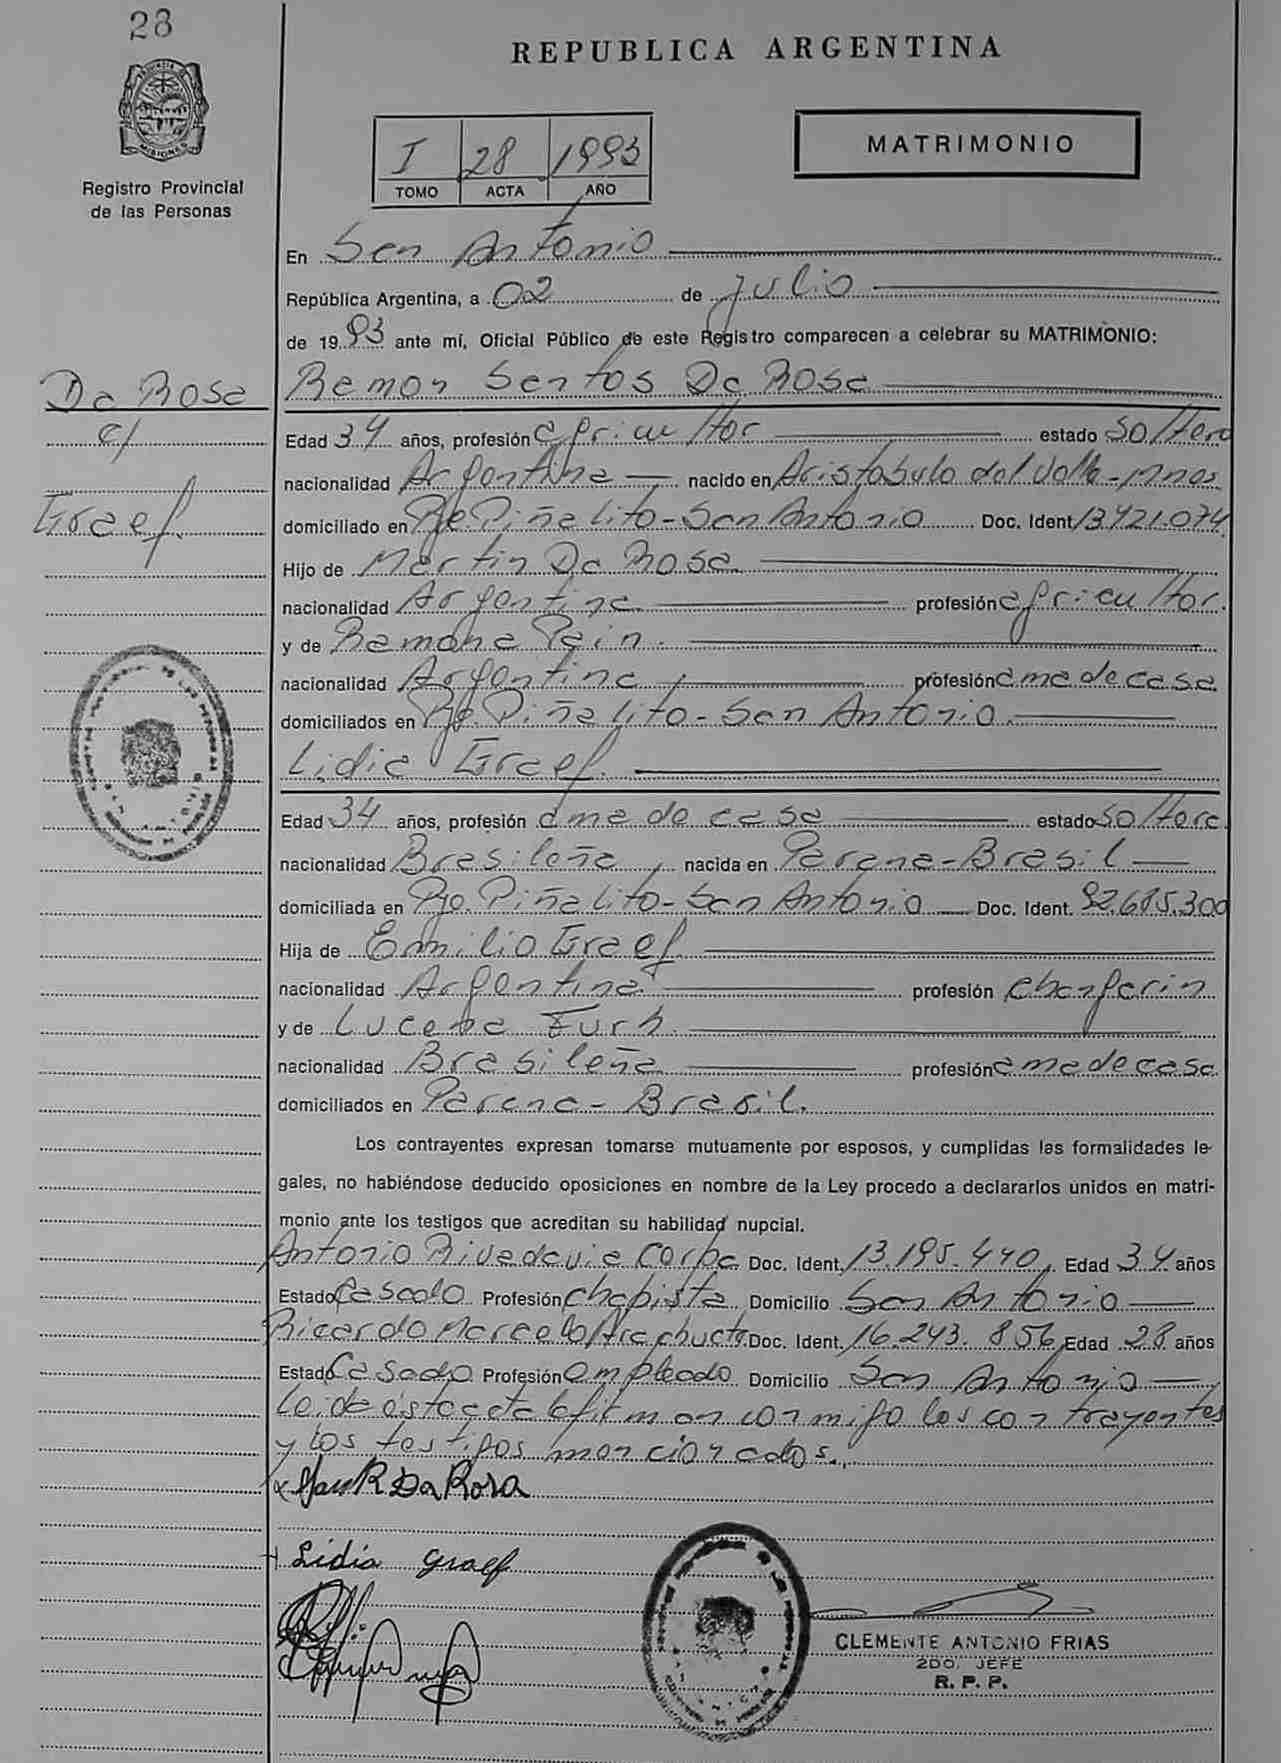 28
REPUBLICA ARGENTINA
I 28 1993
TOMO ACTA AÑO
MATRIMONIO
MISIONES
Registro Provincial
de las Personas
En San Antonio
República Argentina, a 02 de Julio
de 1993 ante mí, Oficial Público de este Registro comparecen a celebrar su MATRIMONIO:
Da Rosa
c/
Graef.
Ramon Santos Da Rosa
Edad 34 años, profesión agricultor estado soltero
nacionalidad Argentina nacido en Aristobulo del Valle - Mnes.
domiciliado en Pje. Piñalito - San Antonio Doc. Ident. 13.421.074
Hijo de Martin Da Rosa
nacionalidad Argentina profesión agricultor.
y de Ramona Pain.
nacionalidad Argentina profesión ama de casa
domiciliados en Pje. Piñalito - San Antonio
Lidia Graef.
Edad 34 años, profesión ama de casa estado soltera
nacionalidad Brasileña nacida en Parana - Brasil
domiciliada en Pje. Piñalito - San Antonio Doc. Ident. 92.685.300
Hija de Emilio Graef
nacionalidad Argentina profesión
y de Lucena Furh.
nacionalidad Brasileña profesión ama de casa
domiciliados en Parana - Brasil.
Los contrayentes expresan tomarse mutuamente por esposos, y cumplidas las formalidades le-
gales, no habiéndose deducido oposiciones en nombre de la Ley procedo a declararlos unidos en matri-
monio ante los testigos que acreditan su habilidad nupcial.
Antonio Rivadavia Doc. Ident. 13.195.440 Edad 34 años
Estado Casado Profesión chapista Domicilio San Antonio
Ricardo Marcelo Doc. Ident. 16.243.856 Edad 28 años
Estado Casado Profesión empleado Domicilio San Antonio
Leida ésta acta la firman conmigo los contrayentes
y los testigos mencionados.
x R Da Rosa
+ Lidia Graef
CLEMENTE ANTONIO FRIAS
2DO. JEFE
R. P. P.